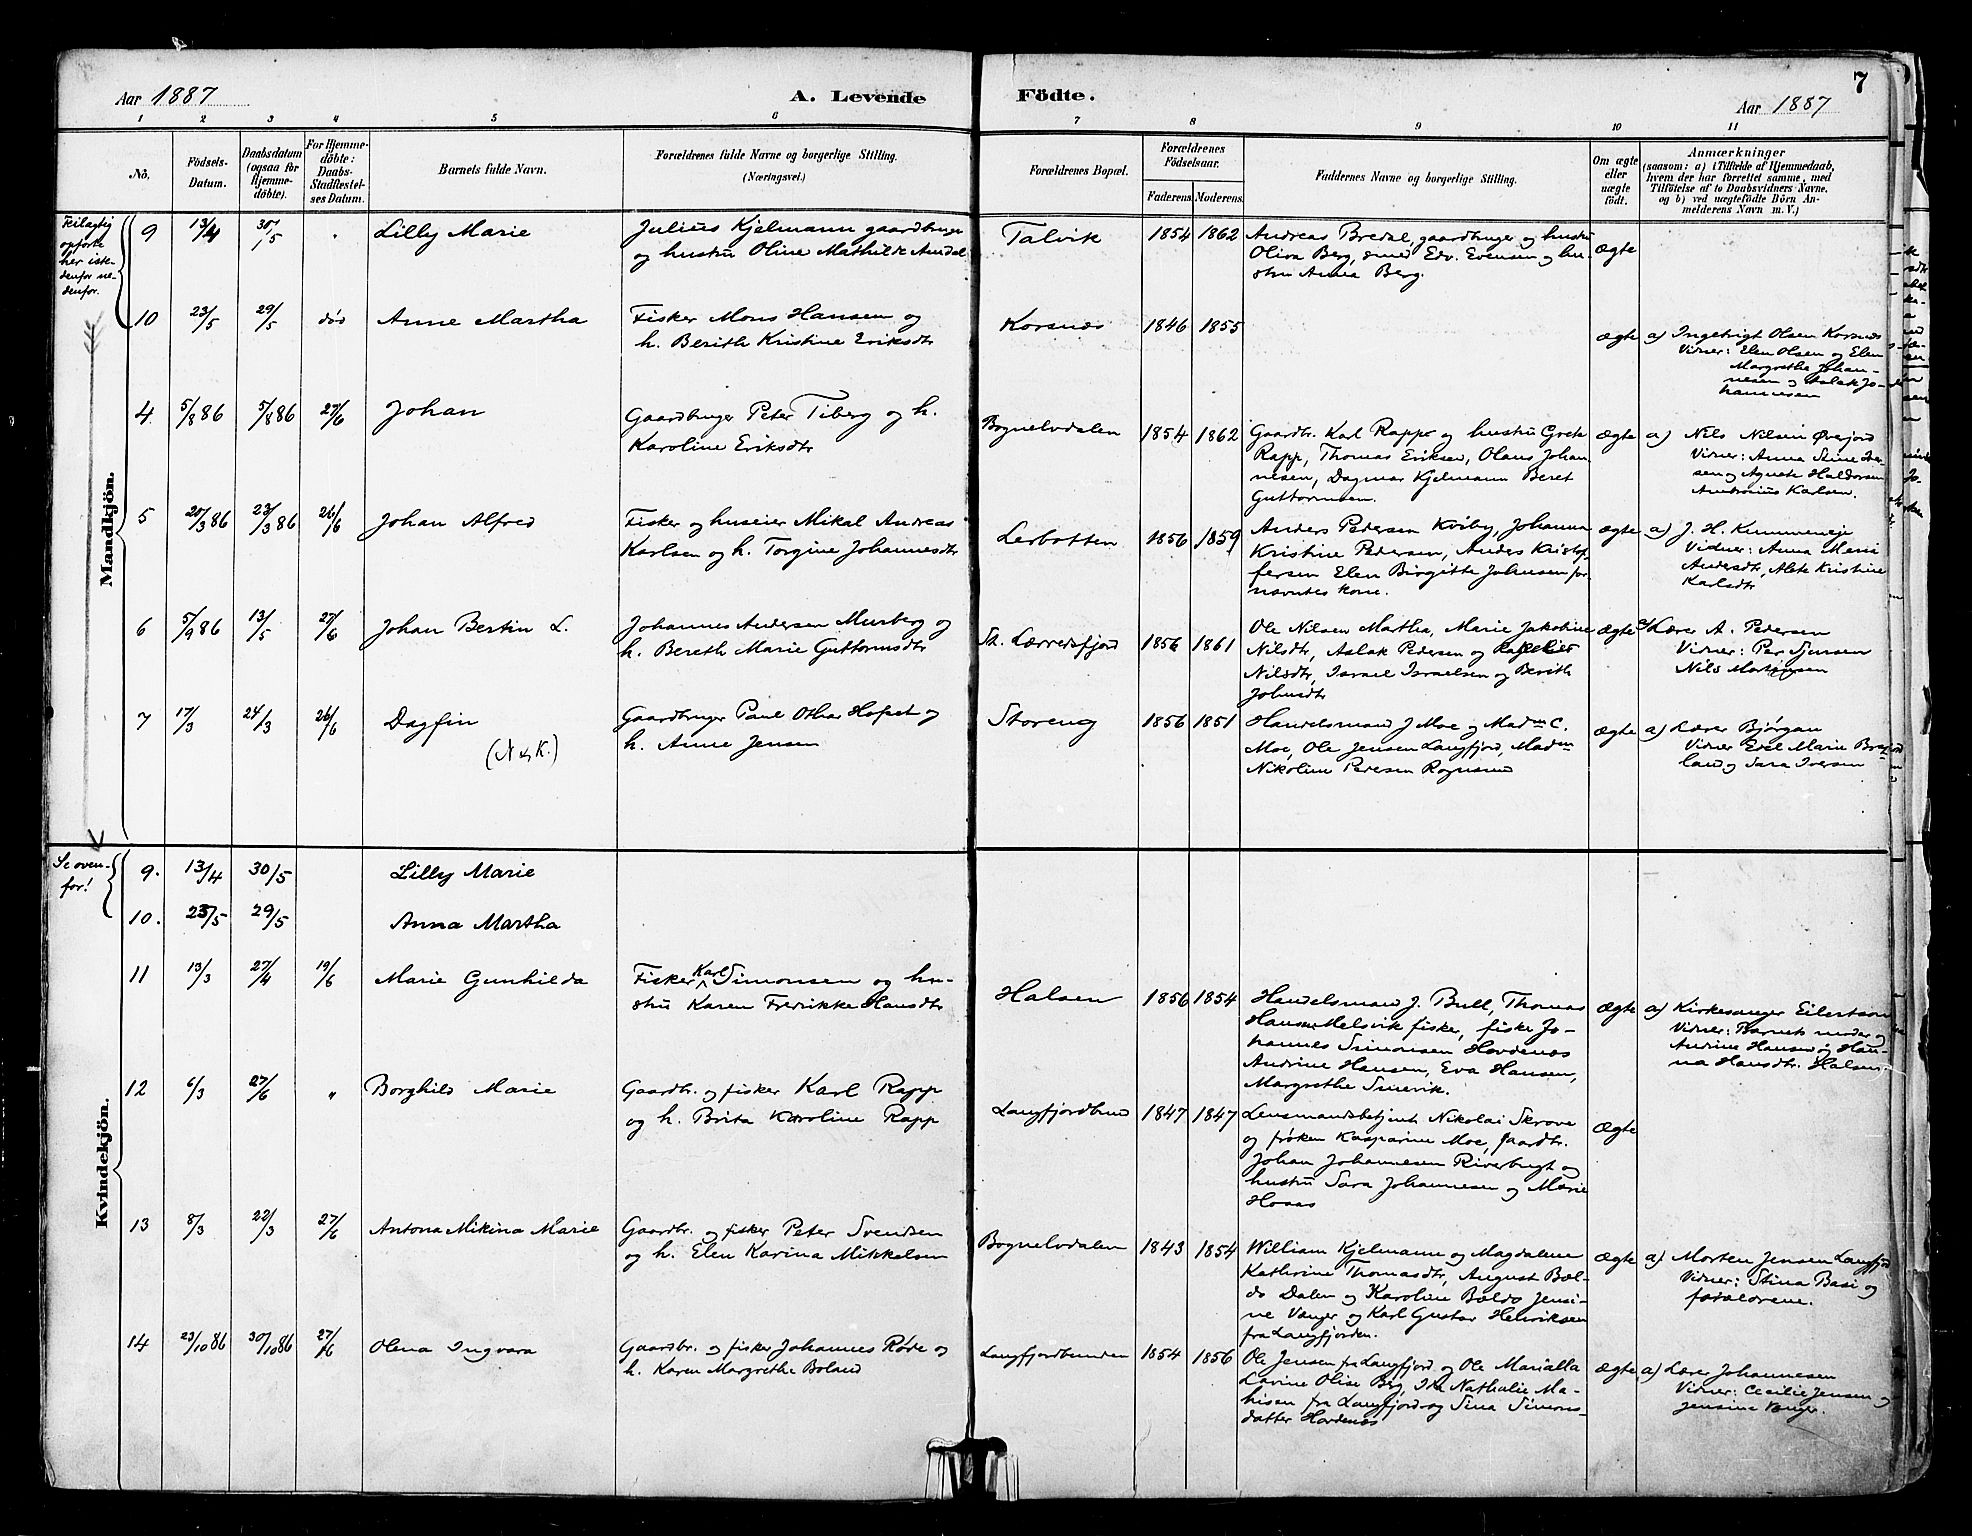 Aar 1887
A. Levende
Födte.
7
Aar 1887
1 2 3 4 5 6 7 8 9 10 11
No.
Födsels-
Datum.
Daabsdatum
(ogsaa for
Hjemme-
döbte).
For Hjemme-
döbte:
Daabs-
Stadfæstel-
ses Datum.
Barnets fulde Navn.
Forældrenes fulde Navne og borgerlige Stilling.
(Næringsvei.)
Forældrenes Bopæl.
Forældrenes
Födselsaar.
Faderens. Moderens.
Faddernes Navne og borgerlige Stilling.
Om ægte
eller
uægte
födt.
Anmærkninger
(saasom: a) i Tilfælde af Hjemmedaab,
hvem der har forrettet samme, med
Tilföielse af to Daabsvidners Navne.
og b) ved uægtefödte Börn An-
melderens Navn m. V.)
Feilagtig
opførte
her iste-
denfor ne-
denfor.
Mandkjön.
9 13/4 30/5 " Lilly Marie
Julius Kjelmann gaardbruger
og hustru Oline Mathilde Amdal
Talvik 1854 1862
Andreas Bredal, gaardbruger og hustru
Oliva Berg, smed Edv. Evensen og hu-
stru Anna Berg.
ægte
10 23/5 29/5 død Anne Martha
Fisker Mons Hansen og
h. Berith Kristine Eriksdtr
Korsnæs 1846 1855
ægte
a) Ingebrigt Olsen Korsnæs
Vidner: Elen Olsen og Elen
Margrethe Johan-
nesen og Aslak Jo-
hannesen
4. 5/8 86 5/8 86 27/6 Johan
Gaardbruger Peter Tiberg og h.
Karoline Eriksdtr
Bognelvdalen 1854 1862
Gaardbr. Karl Rapp og hustru Grete
Rapp, Thomas Eriksen, Olaus Johan-
nesen, Dagmar Kjelmann Beret
Guttormsen.
ægte
a) Nils Nilsen Øverjord
Vidner: Anna Stine Iver-
sen og Agnete Haldorsen
Ambrosius Karlsen.
5 20/3 86 23/3 86 26/6 Johan Alfred
Fisker og huseier Mikal Andreas
Karlsen og h. Torgine Johannesdtr
Lerbotten 1856 1859
Anders Pedersen Kviby, Johanna
Kristine Pedersen, Anders Kristof-
fersen Elen Birgitte Johansen for-
nævntes kone.
ægte
a) J. H. Kummeneje
Vidner: Anna Marie
Andersdtr, Alete Kristine
Karlsdtr
6 5/9 86 13/5 27/6 Johan Bertin L.
Johannes Andersen Murberg og
h. Bereth Marie Guttormsdtr
St. Lærredsfjord 1856 1861
Ole Nilsen Martha, Marie Jakobine
Nilsdtr, Aslak Pedersen og
Nilsdtr, Israel Israelsen og Berith
Johnsdtr
ægte
a) Lærer A. Pedersen
Vidner: Per Jensen
Nils Mortensen
7 17/3 24/3 26/6 Dagfin
(N og K.)
Gaardbruger Paul Othar Hofset og
h. Anne Jensen
Storeng 1856 1851
Handelsmand J Moe og Madm C.
Moe, Ole Jensen Langfjord, Madm
Nikoline Pedersen Rognsund
ægte
a) Lærer Bjørgan
Vidner Edel Marie
land og Sara Iversen
Se oven-
for!
Kvindekjön.
9. 13/4 30/5 Lilly Marie
10. 23/5 29/5 Anna Martha
11 13/3 27/4 19/6 Marie Gunhilda
Fisker Karl Simonsen og hu-
stru Karen Fredrikke Hansdtr
Halsen 1856 1854
Handelsmand J. Bull, Thomas
Hansen Melsvik fisker, fisker Jo-
hannes Simonsen Hovdenæs
Andrine Hansen, Eva Hansen,
Margrethe Simevik.
ægte
a) Kirkesanger Eilertsen
Vidner: Barnets moder og
Andrine Hansen og Han-
na Hansdtr. Halsen
12 6/3 27/6 " Borghild Marie
Gaardbr. og fisker Karl Rapp
og h. Brita Karoline Rapp
Langfjordbund 1847 1847
Lensmandsbetjent Nikolai Skrove
og frøken Kasparine Moe, gaardbr.
Johan Johannesen Riverbugt og
hustru Sara Johannesen og Marie
Hosas
ægte
13 8/3 22/3 27/6 Antona Mikina Marie
Gaardbr. og fisker Peter Svendsen
og h. Elen Karina Mikkelsen
Bognelvdalen 1843 1854
William Kjelmann og Magdalene
Kathrine Thomasdtr, August Bæl-
do Dalen og Karoline Bældo Jensi-
ne Vanger og Karl Gustav Henriksen
fra Langfjorden.
ægte
a) Morten Jensen Langfjord
Vidner: Stina Basi og
forældrene.
14 23/10 86 30/10 86 27/6 Olena Ingvara
Gaardbr. og fisker Johannes Røde og
h. Karen Margrethe Boland
Langfjordbunden 1854 1856
Ole Jensen fra Langfjord og Ole Marialla
Lavine Olise Berg, Ida Nathalie Ma-
thisen fra Langfjord og Sina Simons-
datter Hovdenæs
ægte
a) Lærer Johannesen
Vidner: Cecilie Jensen og
Jensine Vanger.